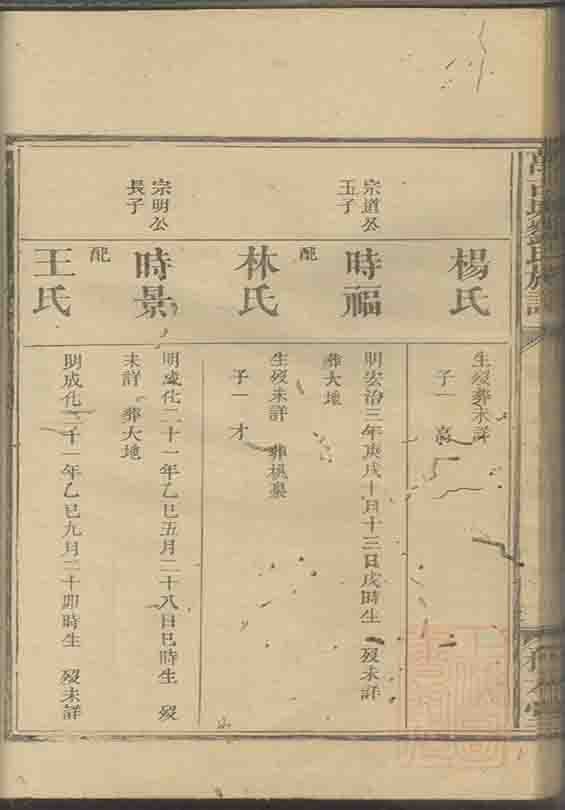 楊氏
生歿葬未詳
子一
宗道公
五子
時福
明宏治三年庚戌十月十三日戌時生 歿未詳
葬大地
配
林氏
生歿未詳 葬桃墓
子一才
宗明公
長子
時景
明成化二十一年乙巳五月二十八日巳時生 歿
未詳 葬大地
配
王氏
明成化二十一年乙巳九月二十卯時生 歿未詳
劉氏族譜